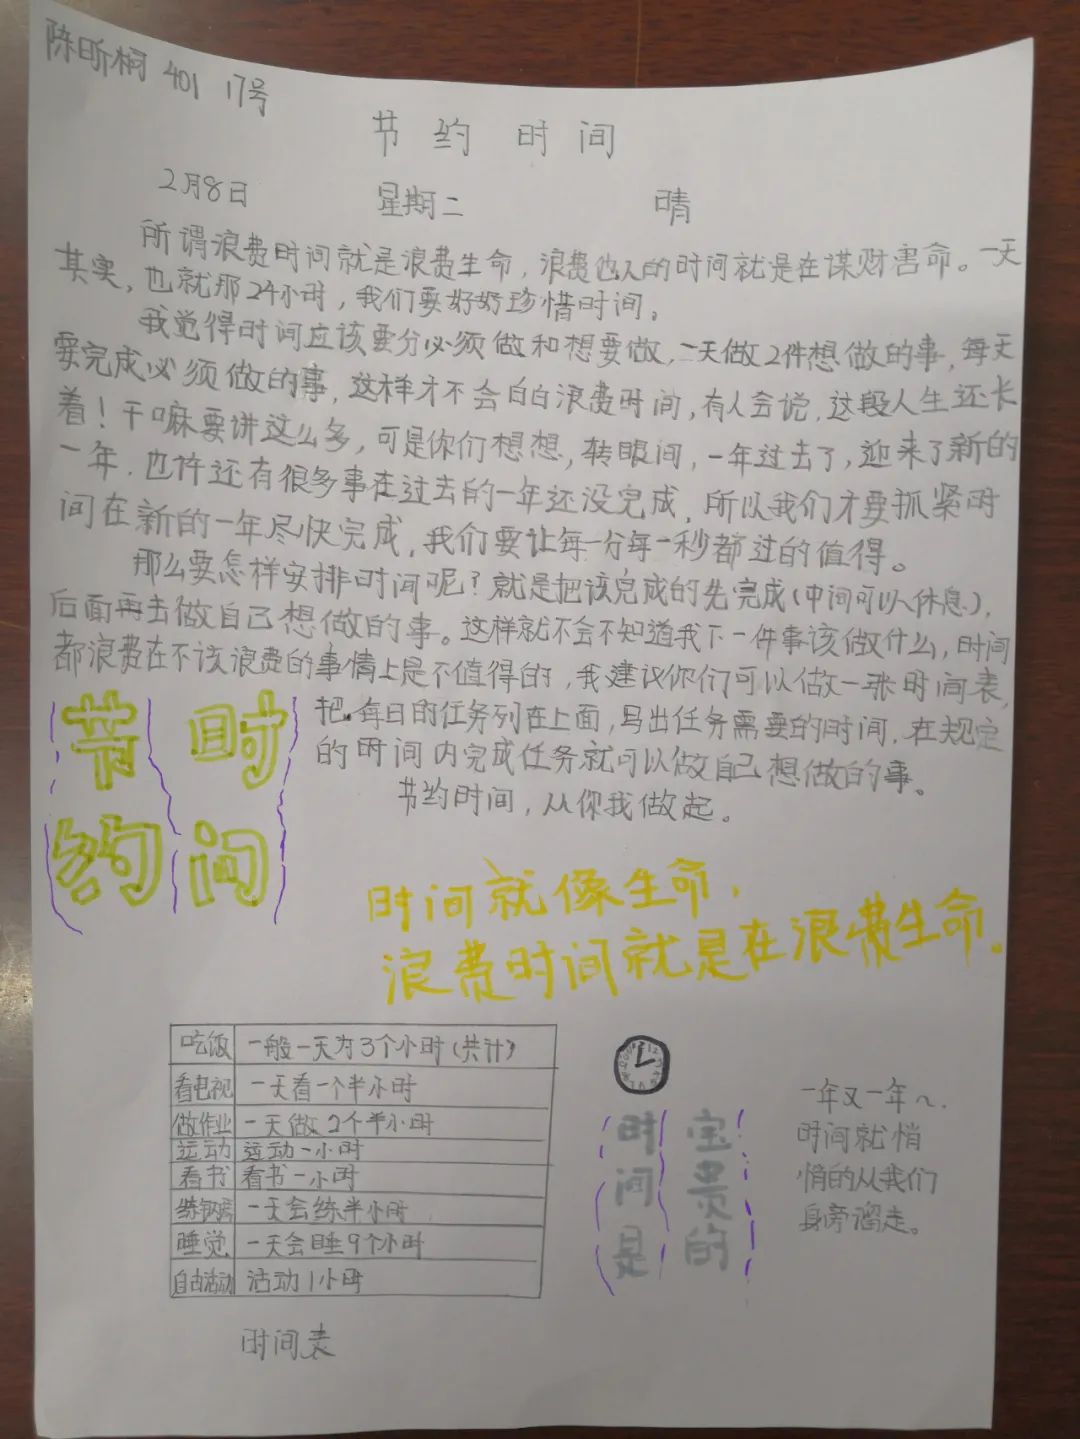 陈昕桐 401 17号
节约时间
2月8日 星期二 晴
所谓浪费时间就是浪费生命，浪费他人的时间就是在谋财害命。一天
其实，也就那24小时，我们要好好珍惜时间。
我觉得时间应该要分必须做和想要做，一天做2件想做的事，每天
要完成必须做的事，这样才不会白白浪费时间，有人会说，这段人生还长
着！干嘛要讲这么多，可是你们想想，转眼间，一年过去了，迎来了新的
一年．也许还有很多事在过去的一年还没完成，所以我们才要抓紧时
间在新的一年尽快完成，我们要让每一分每一秒都过的值得。
那么要怎样安排时间呢？就是把该完成的先完成(中间可以休息)，
后面再去做自己想做的事。这样就不会不知道我下一件事该做什么，时间
都浪费在不该浪费的事情上是不值得的，我建议你们可以做一张时间表，
把每日的任务列在上面，写出任务需要的时间．在规定
的时间内完成任务就可以做自己想做的事。
节约时间，从你我做起。
节时
约间
时间就像生命，
浪费时间就是在浪费生命。
吃饭 一般一天为3个小时(共计)
看电视 一天看一个半小时
做作业 一天做2个半小时
运动 运动一小时
看书 看书一小时
练钢琴 一天会练半小时
睡觉 一天会睡9个小时
自由活动 活动1小时
时间表
时间是
宝贵的
一年又一年～．
时间就悄
悄的从我们
身旁溜走。